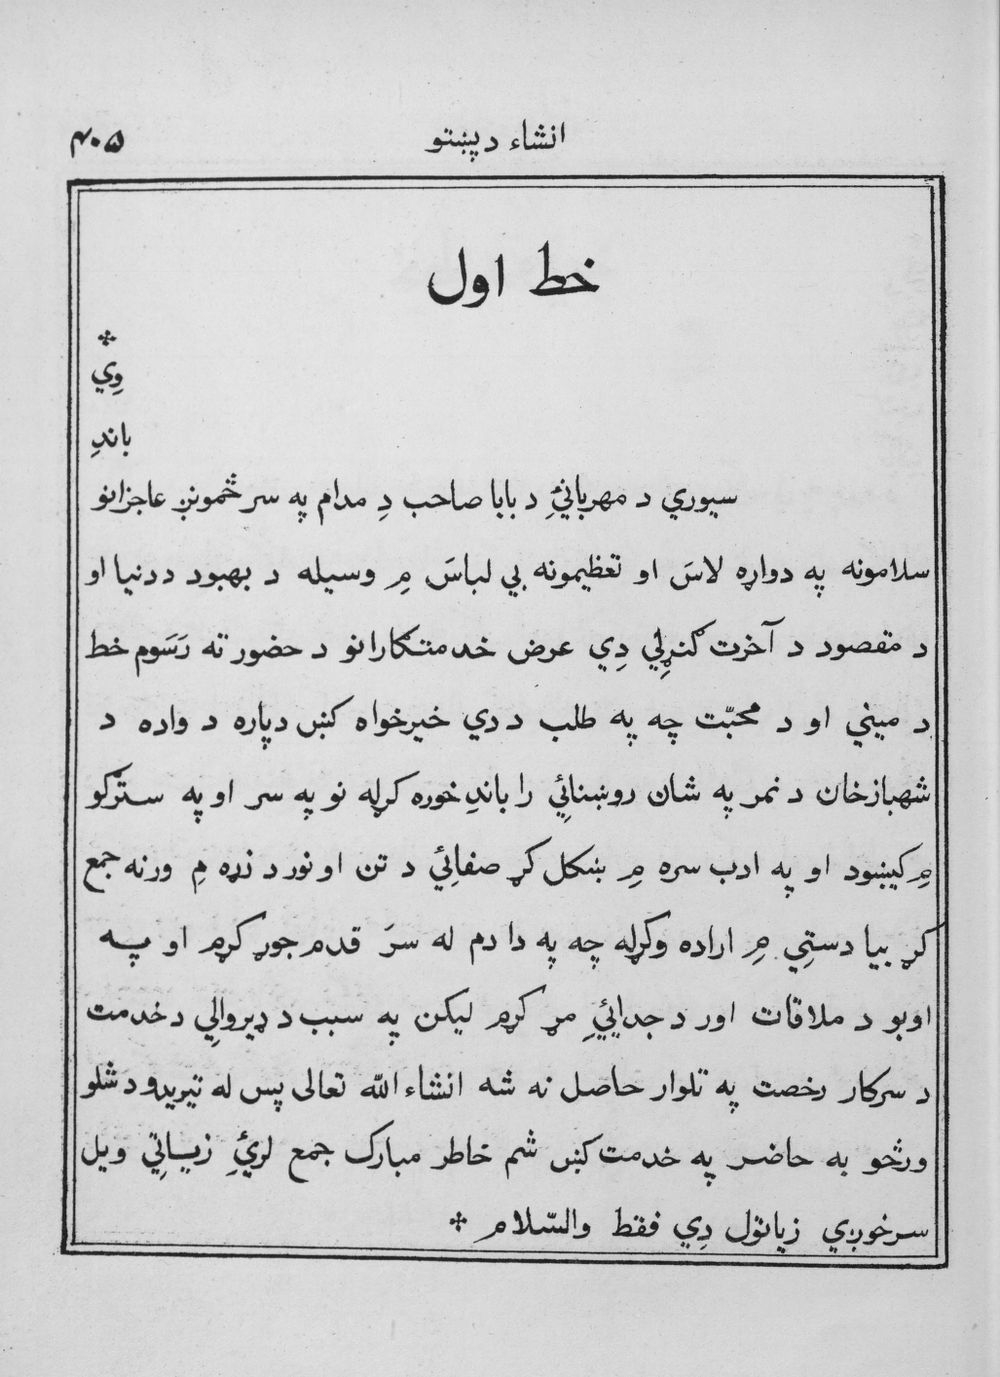 انشاء د پښتو
۴۰۵
خط اول
وِي
باندِ
سیوري د مهربانۍِ د بابا صاحب دِ مدام په سر څمونږ عاجزانو
سلامونه په دواړه لاسَ او تعظیمونه بي لباسَ مِ وسیله د بهبود د دنیا او
د مقصود د آخرت ګنړلِي دِي عرض خدمتګارانو د حضور ته رَسَوم خط
د میني او د محبّت چه په طلب د دي خیرخواه کښ دپاره د واده د
شهبازخان د نمر په شان روښنائِي را باندِ خوره کړله نو په سر او په سترګو
مِ کیښود او په ادب سره مِ ښکل کړ صفائِي د تن او نور د زړه مِ ورنه جمع
کړ بیا دستِي مِ اراده وکړله چه په دا دم له سرَ قدم جوړ کړم او په
اوبو د ملاقات اور د جدایئِ مړ کړم لیکن په سبب د ډیروالِي د خدمت
د سرکار رخصت په تلوار حاصل نه شه انشاء اللّه تعالی پس له تیریدو د شلو
ورځو به حاضر په خدمت کښ شم خاطر مبارک جمع لرئِ زیاتِي ویل
سرخوږي زیاتول دِي فقط والسّلام